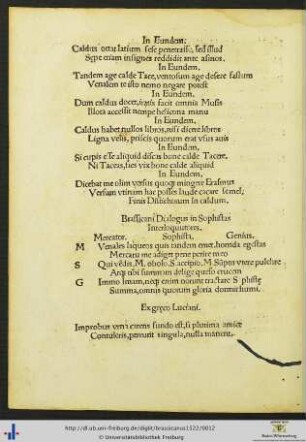 In Eundem.
Caldus ortu latium sese penetrasse, sed illud
Sepe etiam insignes reddidit ante asinos.
In Eundem.
Tandem age calde Tace, ventosum age desere fastum
Venalem te isto nemo negare potest
In Eundem.
Dum caldus docet, facit omnia Musis
Illota accessit nempe heliconia manu
In Eundem.
Caldus habet nullos libros, nisi dicere libros
Ligna velis, priscis quorum erat vsus auis
In Eundem.
Si cupis esse aliquid discas bone calde Tacere.
Ni Taceas, sies vix bone calde aliquid
In Eundem.
Dicebat me olim versus quoque mingere Erasmus
Versum vtinam hac posses laude cacare semel;
Finis Distichorum in Caldum.
Brassicani Dialogus in Sophistas
Interloquutores.
Mercator. Sophista, Genius.
M Venales laqueos quis tandem emet, horrida egestas
Mercari me adiget pene perire meo
S Qui vendis, M. obolo. S. accipio. M. Super vtere pulchre
Atque tibi summum delige quesо crucem
G Immo Imam, neque enim norunt tractare S. phiste
Summa, omnis quorum gloria dormit humi.
Ex greco Luciani.
Improbus vena carens fundo est, si plurima amice
Contuleris, pereunt singula, nulla manent.
http://dl.ub.uni-freiburg.de/diglit/brassicanus1522/0012
© Universitätsbibliothek Freiburg